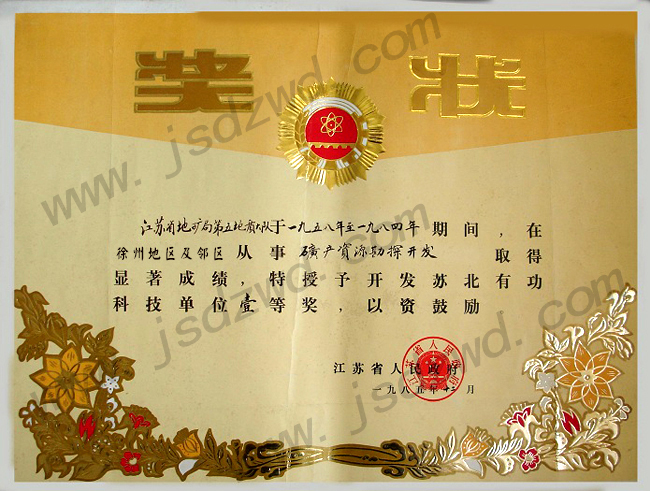 奖 状
江苏省地矿局第五地质队于一九五八年至一九八四年期间，在
徐州地区及邻区从事矿产资源勘探开发取得
显著成绩，特授予开发苏北有功
科技单位壹等奖，以资鼓励
江苏省人民政府
一九八五年十二月
www.jsdzwd.com
www.jsdzwd.com
www.jsdzwd.com